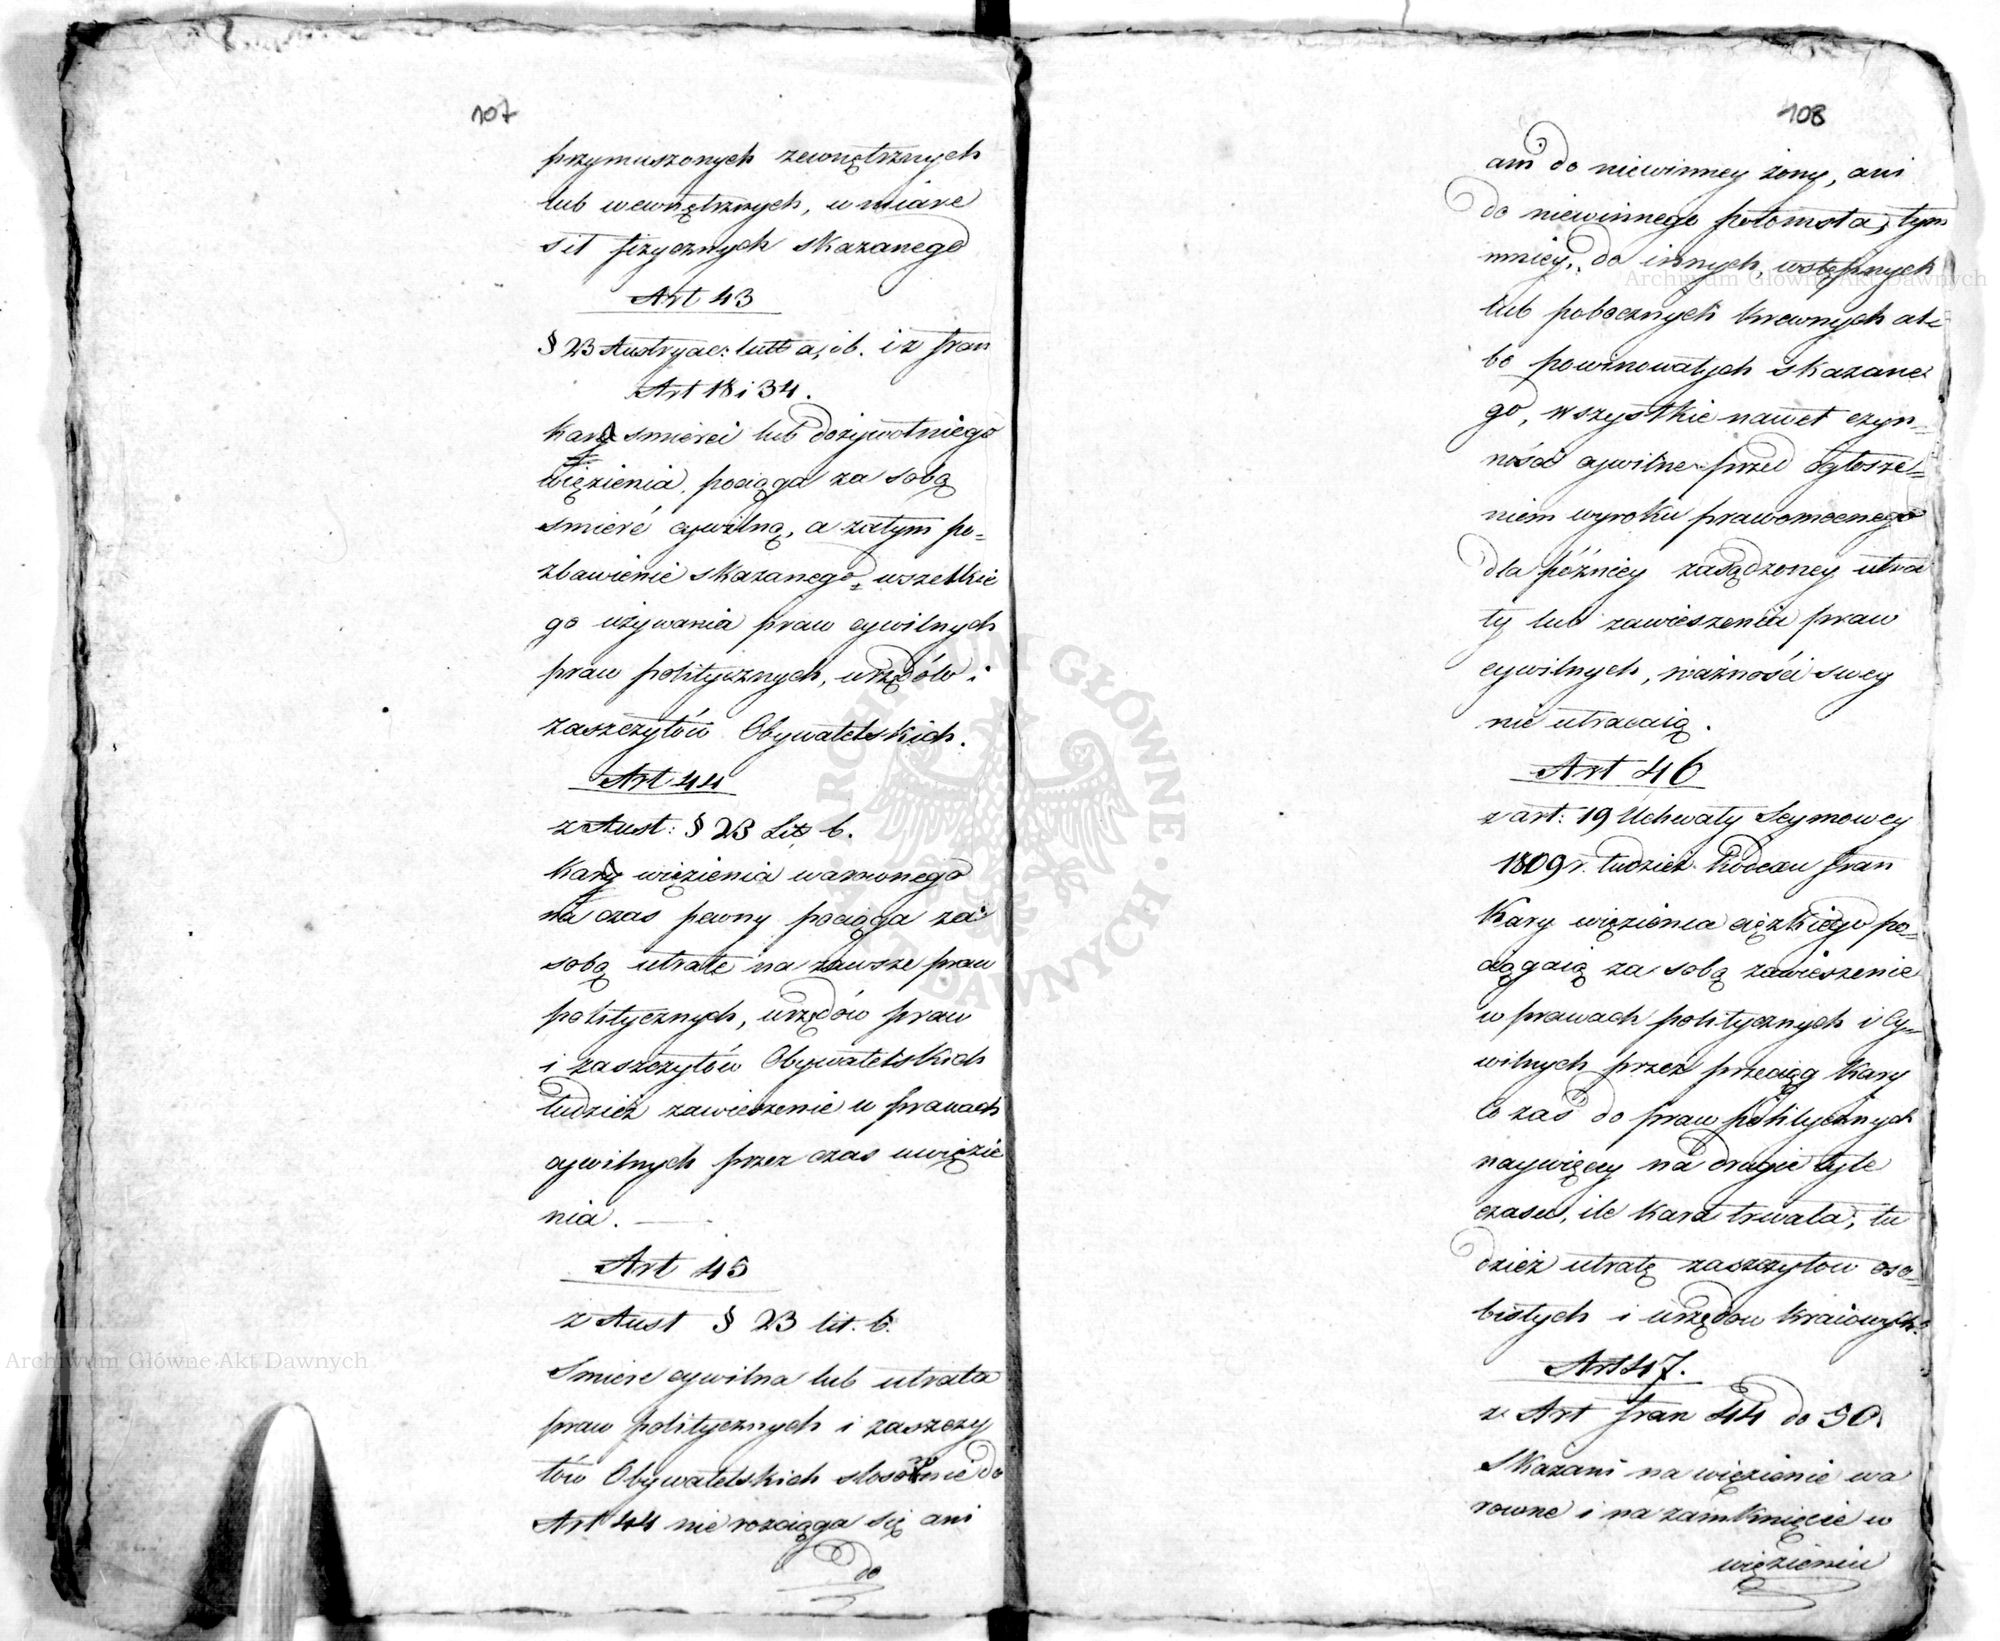 107
przymuszonych zewnętrznych
lub wewnętrznych, w miarę
sił fizycznych skazanego
Art 43
§ 23 Austryac: litt a, i b. i z fran
Art 18 i 34.
Kara smierci lub dożywotniego
więzienia, pociąga za sobą
smierć cywilną, a zatym po=
zbawienie skazanego, wszelkie
go używania praw cywilnych
praw politycznych, urzędów i
zaszczytów Obywatelskich.
Art 44
z Aust: § 23 Lit, b.
Kara więzienia warownego
na czas pewny pociąga za
sobą utratę na zawsze praw
politycznych, urzędów praw
i zaszczytów Obywatelskich
tudzież zawieszenie w prawach
cywilnych przez czas uwięzie
nia.
Art 45
z Aust § 23 lit. b.
Smierć cywilna lub utrata
praw politycznych i zaszczy
tów Obywatelskich stosownie do
Art 44 nie rozciąga się ani
do
108
ani do niewinney żony, ani
do niewinnego potomstwa, tym
mniey, do innych, wstępnych
lub pobocznych krewnych al=
bo powinowatych skazane=
go, wszystkie nawet czyn=
ności cywilne przed ogłosze=
niem wyroku prawomocnego
dla późniey zasądzoney utra
ty lub zawieszenia praw
cywilnych, ważności swey
nie utracaią.
Art 46
z art: 19 Uchwały Seymowey
1809 r. tudzież Kodexu fran
Kary więzienia ciężkiego po=
ciągaią za sobą zawieszenie
w prawach politycznych i Cy=
wilnych przez przeciąg Kary
Co zaś do praw politycznych
naywięcey na drugie tyle
czasu, ile kara trwała, tu
dzież utratę zaszczytow oso=
bistych i urzędow kraiowych.
Art 47.
z Art fran 44 do 50.
Skazani na więzienie wa
rowne i na zamknięcie w
więzieniu
Archiwum Główne Akt Dawnych
Archiwum Główne Akt Dawnych
ARCHIWUM GŁÓWNE AKT DAWNYCH